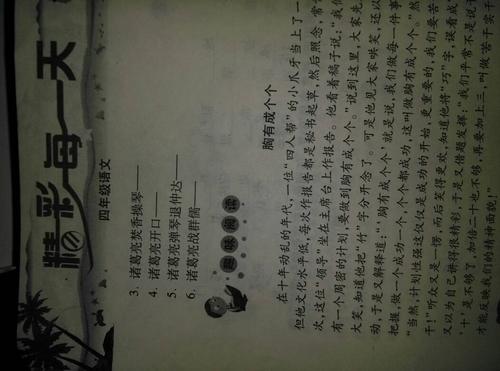 精彩每一天
四年级语文
3. 诸葛亮焚香操琴
4. 诸葛亮开口
5. 诸葛亮弹琴退仲达
6. 诸葛亮战群儒
趣味阅读
胸有成个个
在十年动乱的年代，一位“四人帮”的小爪牙当上了一
但他文化水平低，每次作报告都是秘书起草，然后照念，常
次，这位“领导”坐在主席台上作报告。他看着稿子说：“我们
有一个周密的计划，要做到胸有成个个。”说到这里，大家先
大笑，知道他把“竹”字分开念了。可是他见大家哄笑，还以
动，于是又解释道：“‘胸有成个个’，就是说，我们做每一件事
把握，做一个成功一个，个个都成功，这叫做胸有成个个。”然
“当然，计划性强这仅仅是成功的开始，更重要的，我们要苦
干！”听众又是一愣，而后笑得更欢，知道他将“巧”字，误看成
又以为自己讲得很精彩，于是又借题发挥：“我们平常不是说干
‘十’是不够的，加倍二十也不够，再要加上三，叫做苦干实干
才能反映我们的精神面貌！”